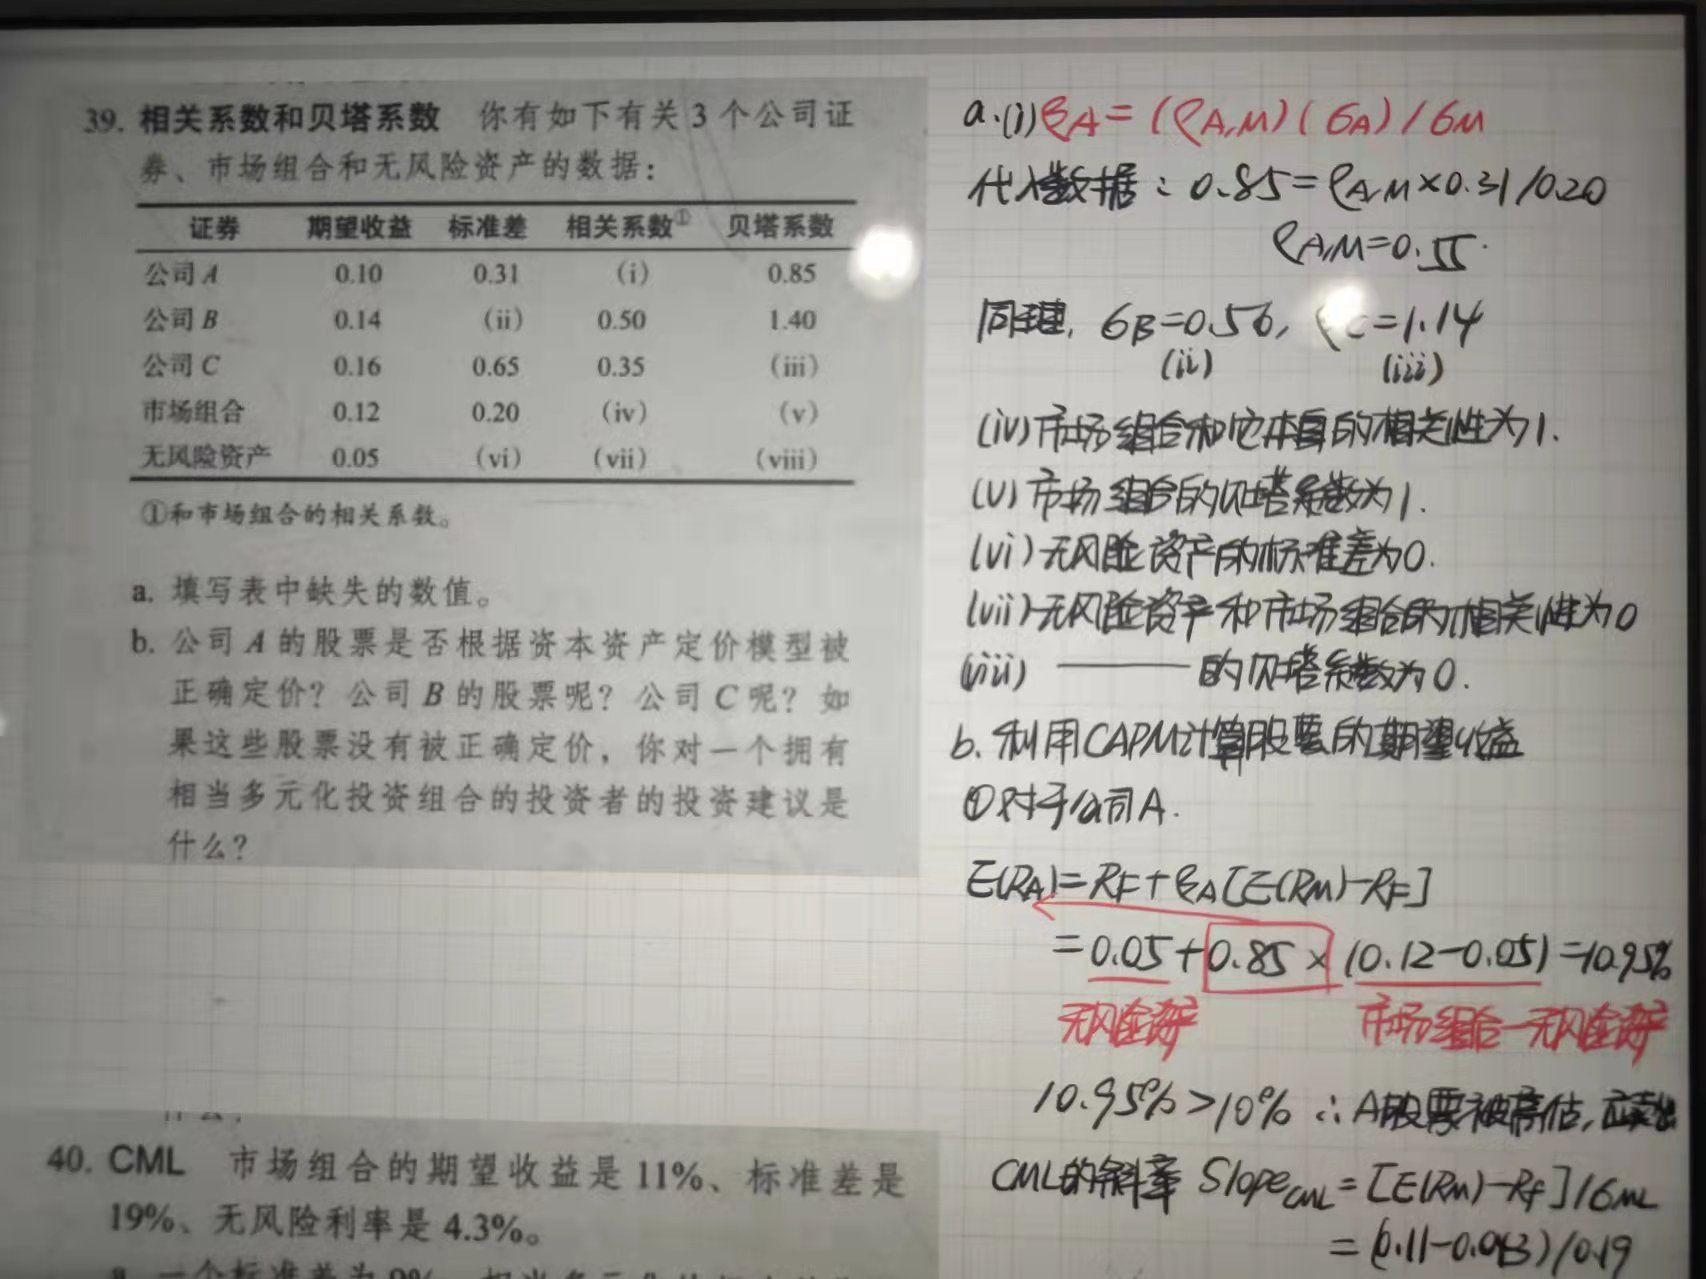 39. 相关系数和贝塔系数 你有如下有关 3 个公司证
券、市场组合和无风险资产的数据：
证券 期望收益 标准差 相关系数① 贝塔系数
公司 A 0.10 0.31 (i) 0.85
公司 B 0.14 (ii) 0.50 1.40
公司 C 0.16 0.65 0.35 (iii)
市场组合 0.12 0.20 (iv) (v)
无风险资产 0.05 (vi) (vii) (viii)
①和市场组合的相关系数。
a. 填写表中缺失的数值。
b. 公司 A 的股票是否根据资本资产定价模型被
正确定价？公司 B 的股票呢？公司 C 呢？如
果这些股票没有被正确定价，你对一个拥有
相当多元化投资组合的投资者的投资建议是
什么？
40. CML 市场组合的期望收益是 11%、标准差是
19%、无风险利率是 4.3%。
a.(i) βA = (ρA,M)(σA)/σM
代入数据：0.85=ρA,M×0.31/0.20
ρA,M=0.55.
同理, σB=0.56, C=1.14
(ii) (iii)
(iv)市场组合和它本身的相关性为1.
(v)市场组合的贝塔系数为1.
(vi)无风险资产的标准差为0.
(vii)无风险资产和市场组合的相关性为0
(viii) —— 的贝塔系数为0.
b. 利用CAPM计算股票的期望收益
①对于公司A.
E(RA)=RF+βA[E(RM)-RF]
=0.05+0.85×(0.12-0.05)=10.95%
无风险资产 市场组合-无风险资产
10.95%>10% ∴A股票被高估,应卖出
CML的斜率 SlopeCML=[E(RM)-Rf]/σML
=(0.11-0.043)/0.19